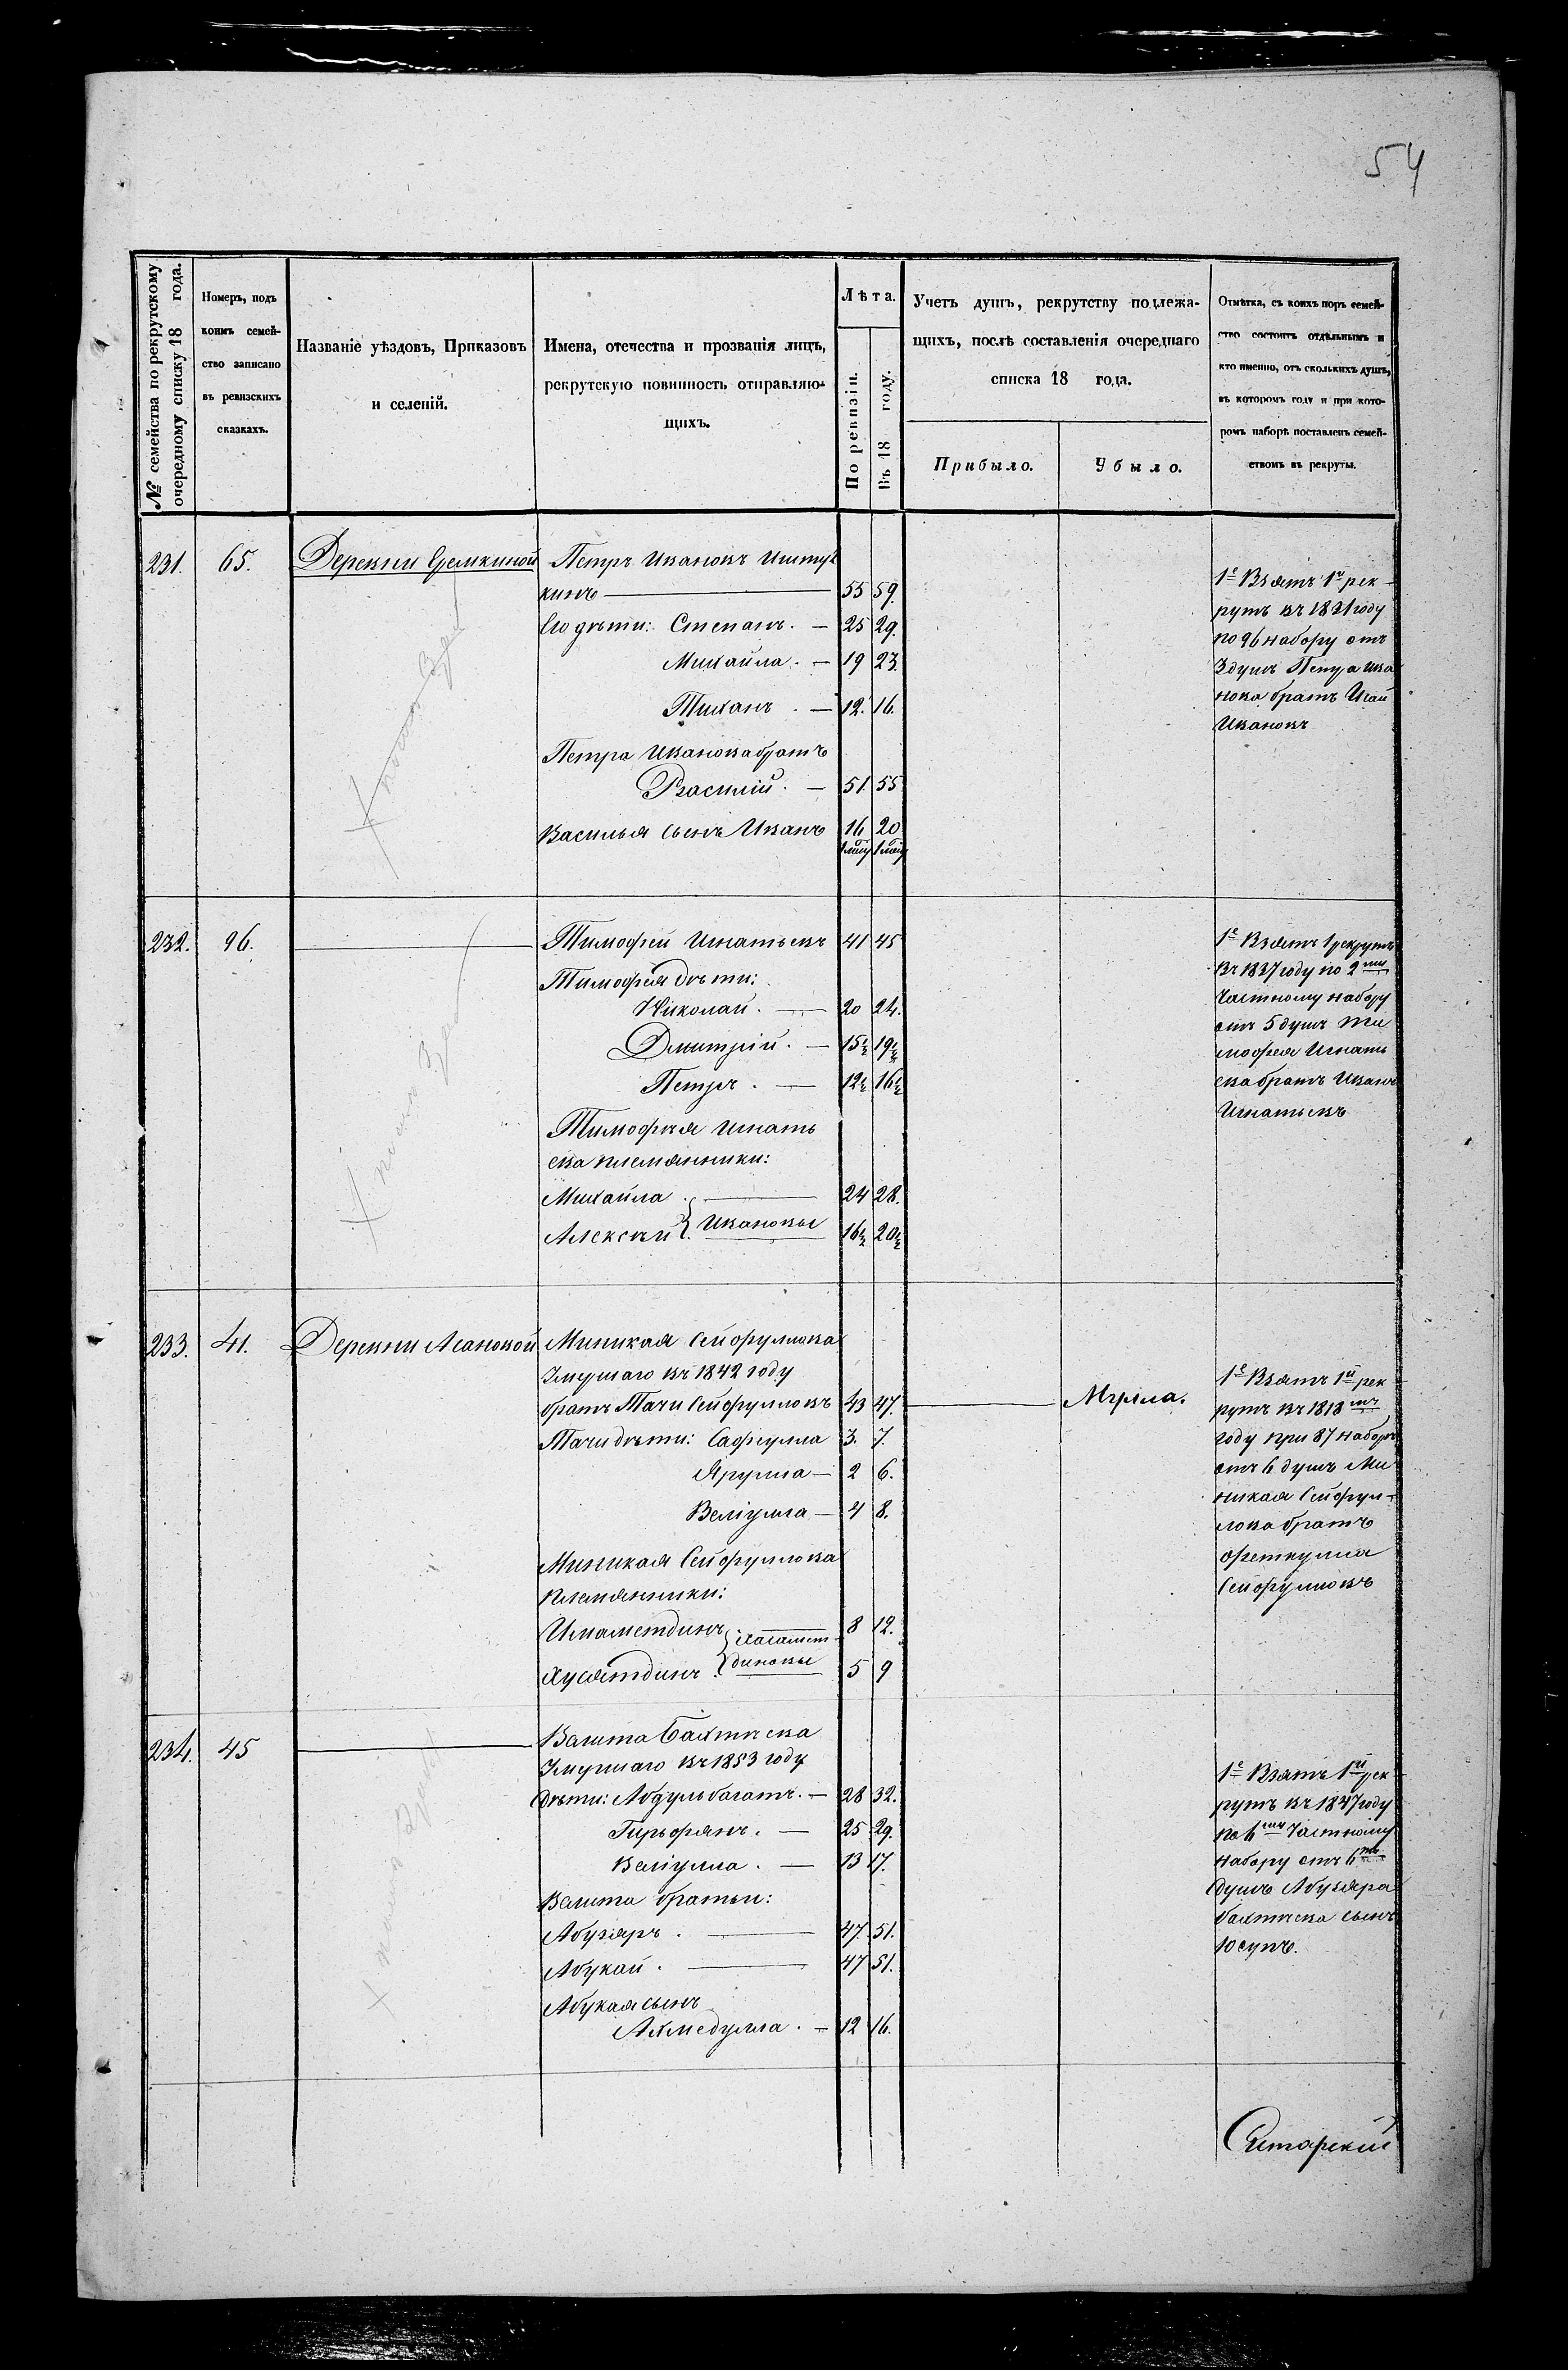 54
№ семейства по рекрутскому очередному списку 18 года.
Номеръ, подъ коимъ семейство записано въ ревизскихъ сказкахъ.
Названіе уѣздовъ, Приказовъ и селеній.
Имена, отечества и прозванія лицъ, рекрутскую повинность отправляющихъ.
Лѣта.
По ревизіи.
Въ 18 году.
Учетъ душъ, рекрутству подлежащихъ, послѣ составленія очереднаго списка 18 года.
Прибыло.
Убыло.
Отмѣтка, съ коихъ поръ семейство состоитъ отдѣльнымъ и кто именно, отъ сколькихъ душъ, въ которомъ году и при которомъ наборѣ поставленъ семействомъ въ рекруты.
231. 65. Деревни Еремкиной Петръ Ивановъ
кинъ 55 59.
Его дѣти: Степанъ. 25 29.
Михайла. 19 23.
Тиханъ. 12. 16.
Петра Иванова братъ
Василій. 51. 55
Василья сынъ Иванъ 16 20
1е Взятъ 1й рек
рутъ въ 1831 году
по 96 набору отъ
3 душъ Петра Ива
нова братъ
Ивановъ
232. 96. Тимофей Игнатьевъ 41 45
Тимофея дѣти:
Николай. 20 24.
Дмитрій. 15½ 19½
Петръ. 12½ 16½
Тимофѣя Игнать
ева племянники:
Михайла 24 28.
Алексѣй } Ивановы 16½ 20½
1е Взятъ 1 рекрутъ
въ 1837 году по 2му
частному набору
отъ 5 душъ Ти
мофея Игнать
ева братъ Иванъ
Игнатьевъ
233. 41. Деревни Асановой Миникая Сейфуллова
Умершаго въ 1842 году
братъ Тачи Сейфулловъ 43 47. Мѣрила.
Тачи дѣти: Сафіулла 3. 7.
Ярулла 2 6.
Веліулла 4 8.
Миникая Сейфуллова
племянники:
Имаметдинъ 8 12.
Хусятдинъ } Хасамет-
диновы 5 9
1е Взятъ 1й рек
рутъ въ 1813мъ
году при 87 наборѣ
отъ 6 душъ Ми
никая Сейфул-
лова братъ
Феткулла
Сейфулловъ
234. 45 Вагита Бахтѣева
Умершаго въ 1853 году
дѣти: Абдулвагатъ. 28 32.
Гирьфанъ. 25 29.
Веліулла. 13 17.
Вагита братьи:
Абузяръ. 47. 51.
Абукай. 47 51.
Абукая сынъ
Ахмедулла. 12 16.
1е Взятъ 1й рек
рутъ въ 1847 году
по 6му частному
набору отъ 6ти
душъ Абузяра
Бахтѣева сынъ
Юсупъ.